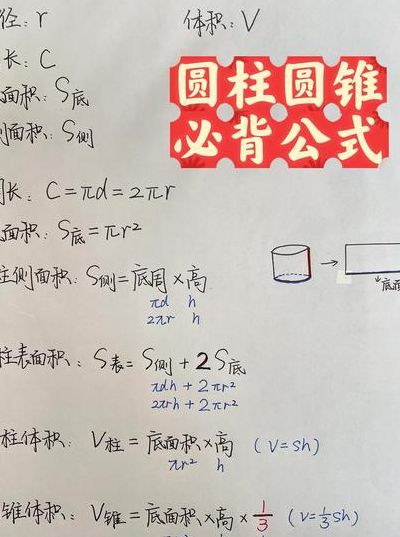 径：r 体积：V
长：C
面积：S底
侧面积：S侧
圆柱圆锥
必背公式
长：C=πd=2πr
面积：S底=πr²
柱侧面积：S侧=底周×高
πd h
2πr h
→
↓底面
柱表面积：S表=S侧+2S底
πdh+2πr²
2πrh+2πr²
柱体积：V柱=底面积×高（V=Sh）
πr² h
锥体积：V锥=底面积×高×1/3（V=1/3Sh）